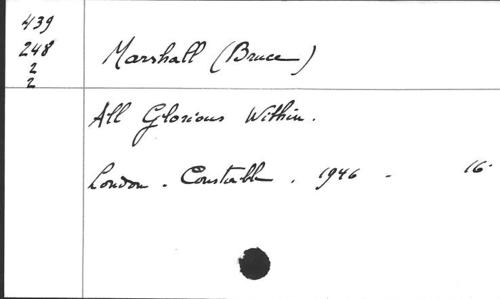 439
248
2
2
Marshall (Bruce)
All Glorious Within.
London. Constable. 1946 - 16°